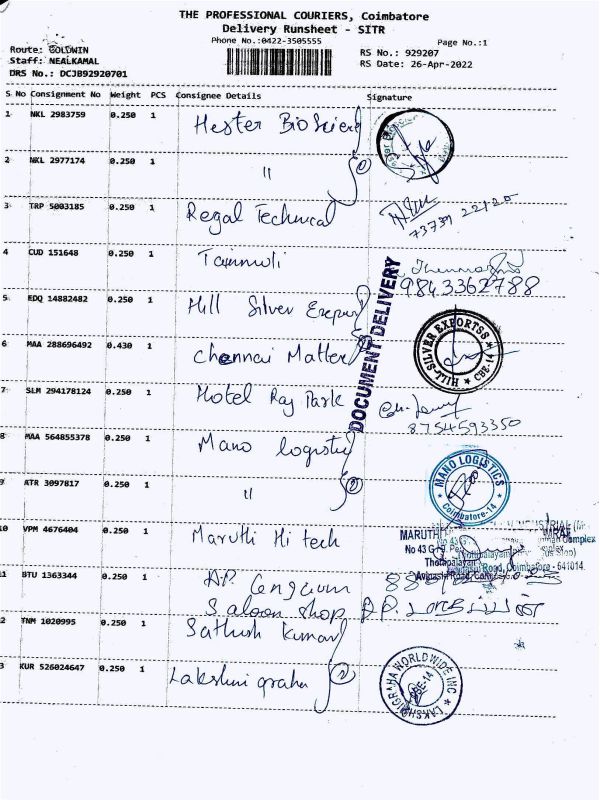 THE PROFESSIONAL COURIERS, Coimbatore
Delivery Runsheet - SITR
Phone No.:0422-3505555
Page No.:1
Route: GOLDWIN
Staff: NEALKAMAL
DRS No.: DCJB92920701
RS No.: 929207
RS Date: 26-Apr-2022
S No Consignment No Weight PCS Consignee Details Signature
1 NKL 2983759 0.250 1 Hester BioScienc
2 NKL 2977174 0.250 1 " 2
3 TRP 5003185 0.250 1 Regal Technical
73739 22120
4 CUD 151648 0.250 1
9843362788
5 EDQ 14882482 0.250 1 Hill Silver
DOCUMENT DELIVERY
HILL SILVER EXPORTSS CBE-14
6 MAA 288696492 0.430 1 Chennai Matter
7 SLM 294178124 0.250 1 Hotel Raj Park
8754593350
8 MAA 564855378 0.250 1 Mano logistic
MANO LOGISTICS
Coimbatore-14
9 ATR 3097817 0.250 1 " 2
10 VPM 4676404 0.250 1 Maruthi Hi tech
MARUTHI
No 43 G
Thottipalayam
Avinashi Road, Coimbatore - 641014.
11 BTU 1363344 0.250 1 A.P.
Saloon shop A.P.
12 TNM 1020995 0.250 1 Sathish Kumar
13 KUR 526024647 0.250 1 Lakshmi graha 2
LAKSHMIGRAHA WORLDWIDE INC
CBE-14